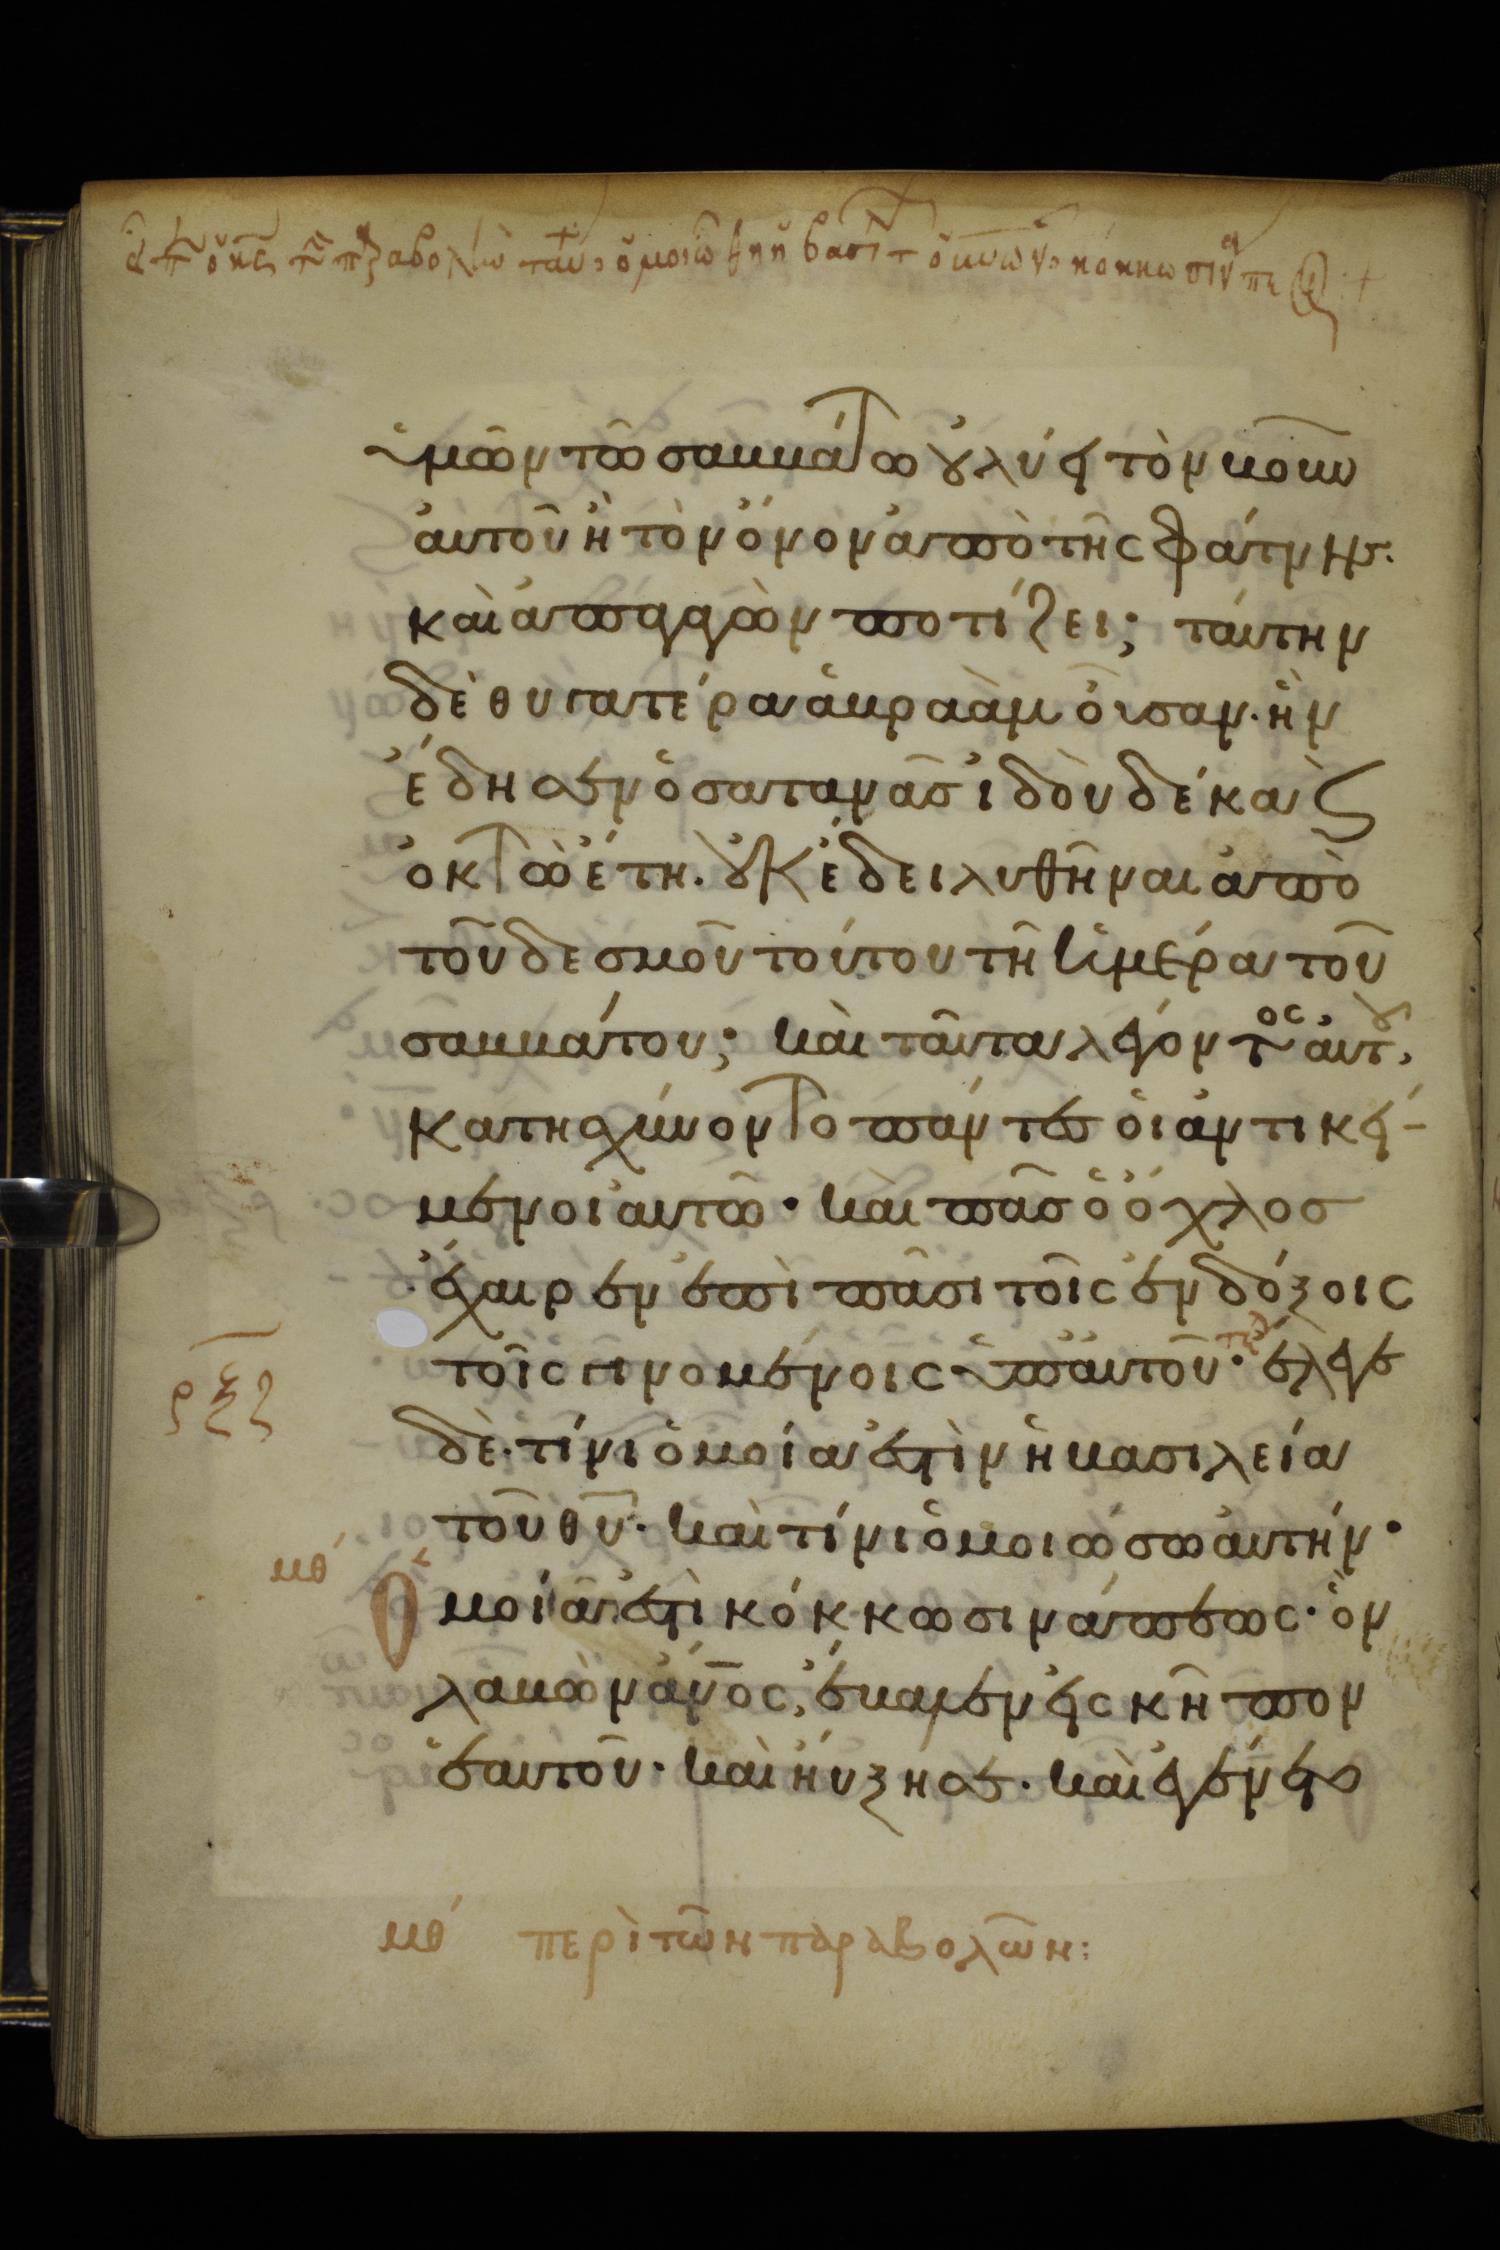 ὑμῶν τῶ σαββάτω οὐ λύει τὸν βοῦν
αὐτοῦ ἢ τὸν ὄνον ἀπὸ τῆς φάτνης·
καὶ ἀπαγαγὼν ποτίζει; ταύτην
δὲ θυγατέρα ἀβραὰμ οὖσαν· ἣν
ἔδησεν ὁ σατανᾶς ἰδοὺ δέκα καὶ
ὀκτὼ ἔτη· οὐκ ἔδει λυθῆναι ἀπὸ
τοῦ δεσμοῦ τούτου τῆ ἡμέρα τοῦ
σαββάτου; καὶ ταῦτα λέγοντος αὐτοῦ,
κατησχύνοντο πάντες οἱ ἀντικεί-
μενοι αὐτῶ· καὶ πᾶς ὁ ὄχλος
ἔχαιρεν ἐπὶ πᾶσι τοῖς ἐνδόξοις
τοῖς γινομένοις ὑπ' αὐτοῦ· ἔλεγε
ρξζ
δὲ· τίνι ὁμοία ἐστὶν ἡ βασιλεία
τοῦ θυ· καὶ τίνι ὁμοιώσω αὐτήν·
μθ
Ὁμοία ἐστὶ κόκκω σινάπεως· ὃν
λαβὼν ἄνος, ἔβαλεν εἰς κῆπον
ἑαυτοῦ· καὶ ηὔξησε· καὶ ἐγένετο
μθ περὶ τῶν παραβολῶν: